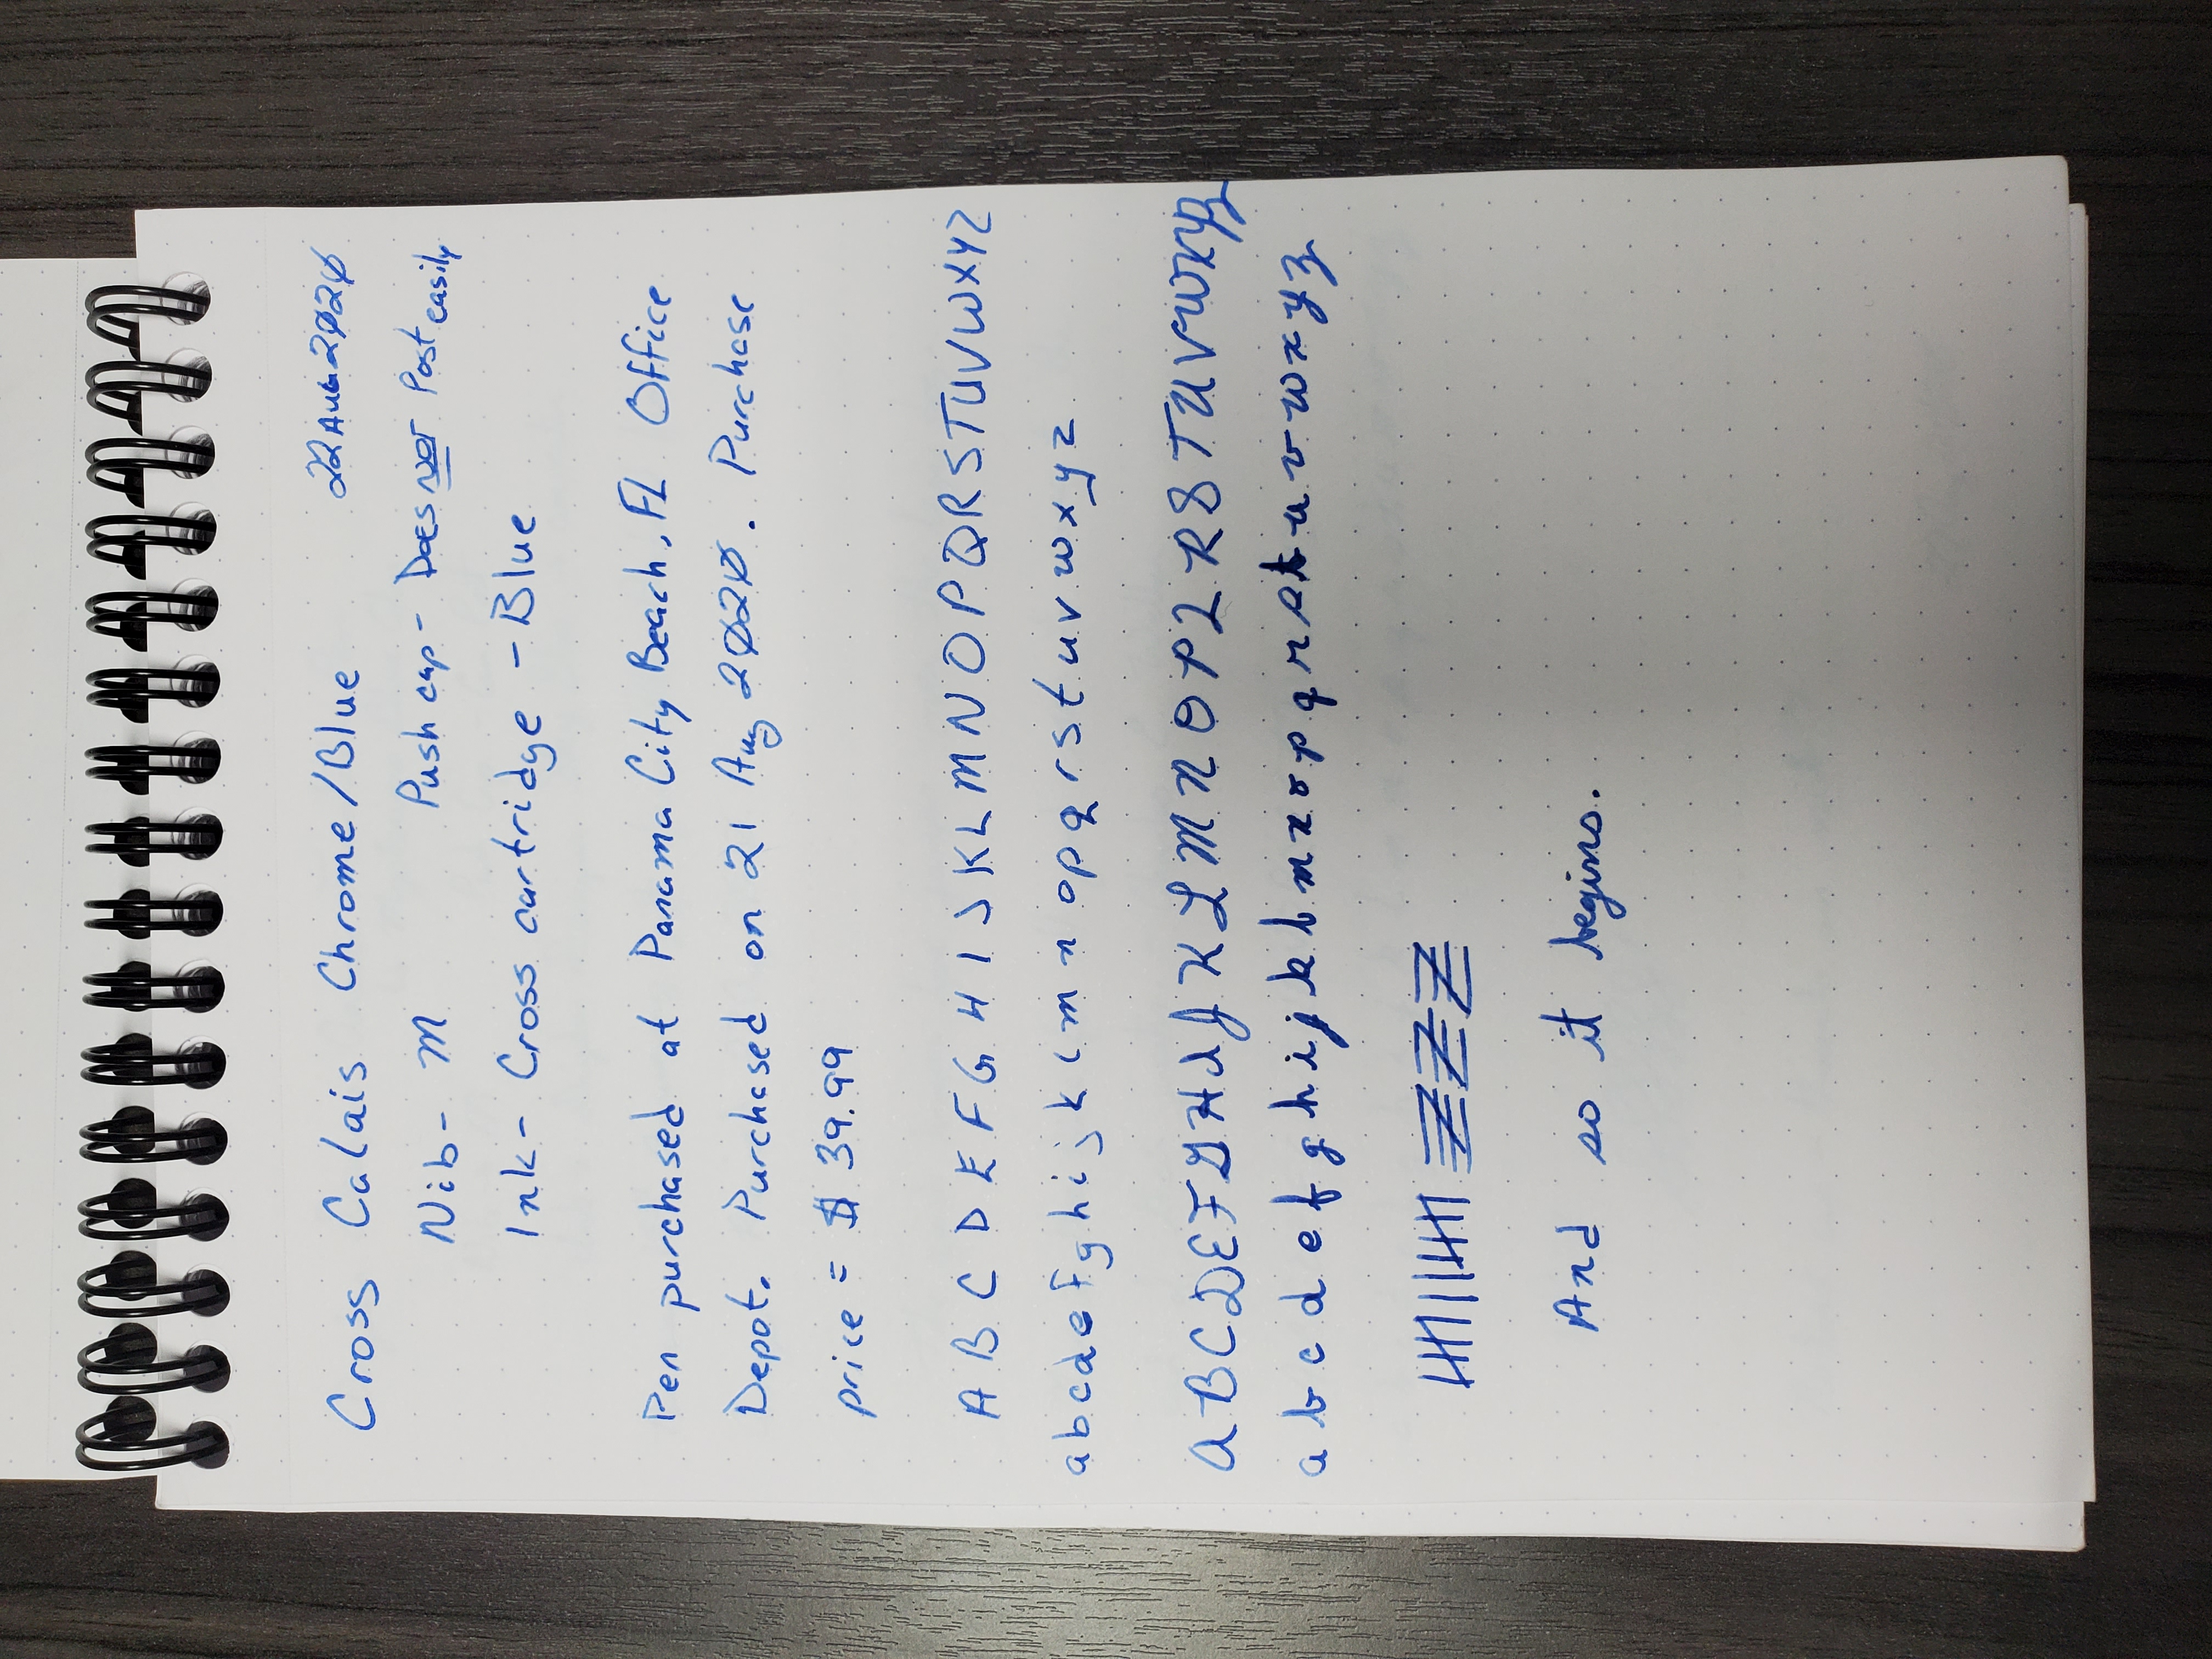 Cross Calais Chrome/Blue 22Aug2020
Nib- M Push cap - Does NOT Post easily
Ink- Cross cartridge - Blue
Pen purchased at Panama City Beach, FL Office
Depot. Purchased on 21 Aug 2020. Purchase
price = $ 39.99
A B C D E F G H I J K L M N O P Q R S T U V W X Y Z
a b c d e f g h i j k l m n o p q r s t u v w x y z
A B C D E F G H I J K L M N O P Q R S T U V W X Y Z
a b c d e f g h i j k l m n o p q r s t u v w x y z
And so it begins.